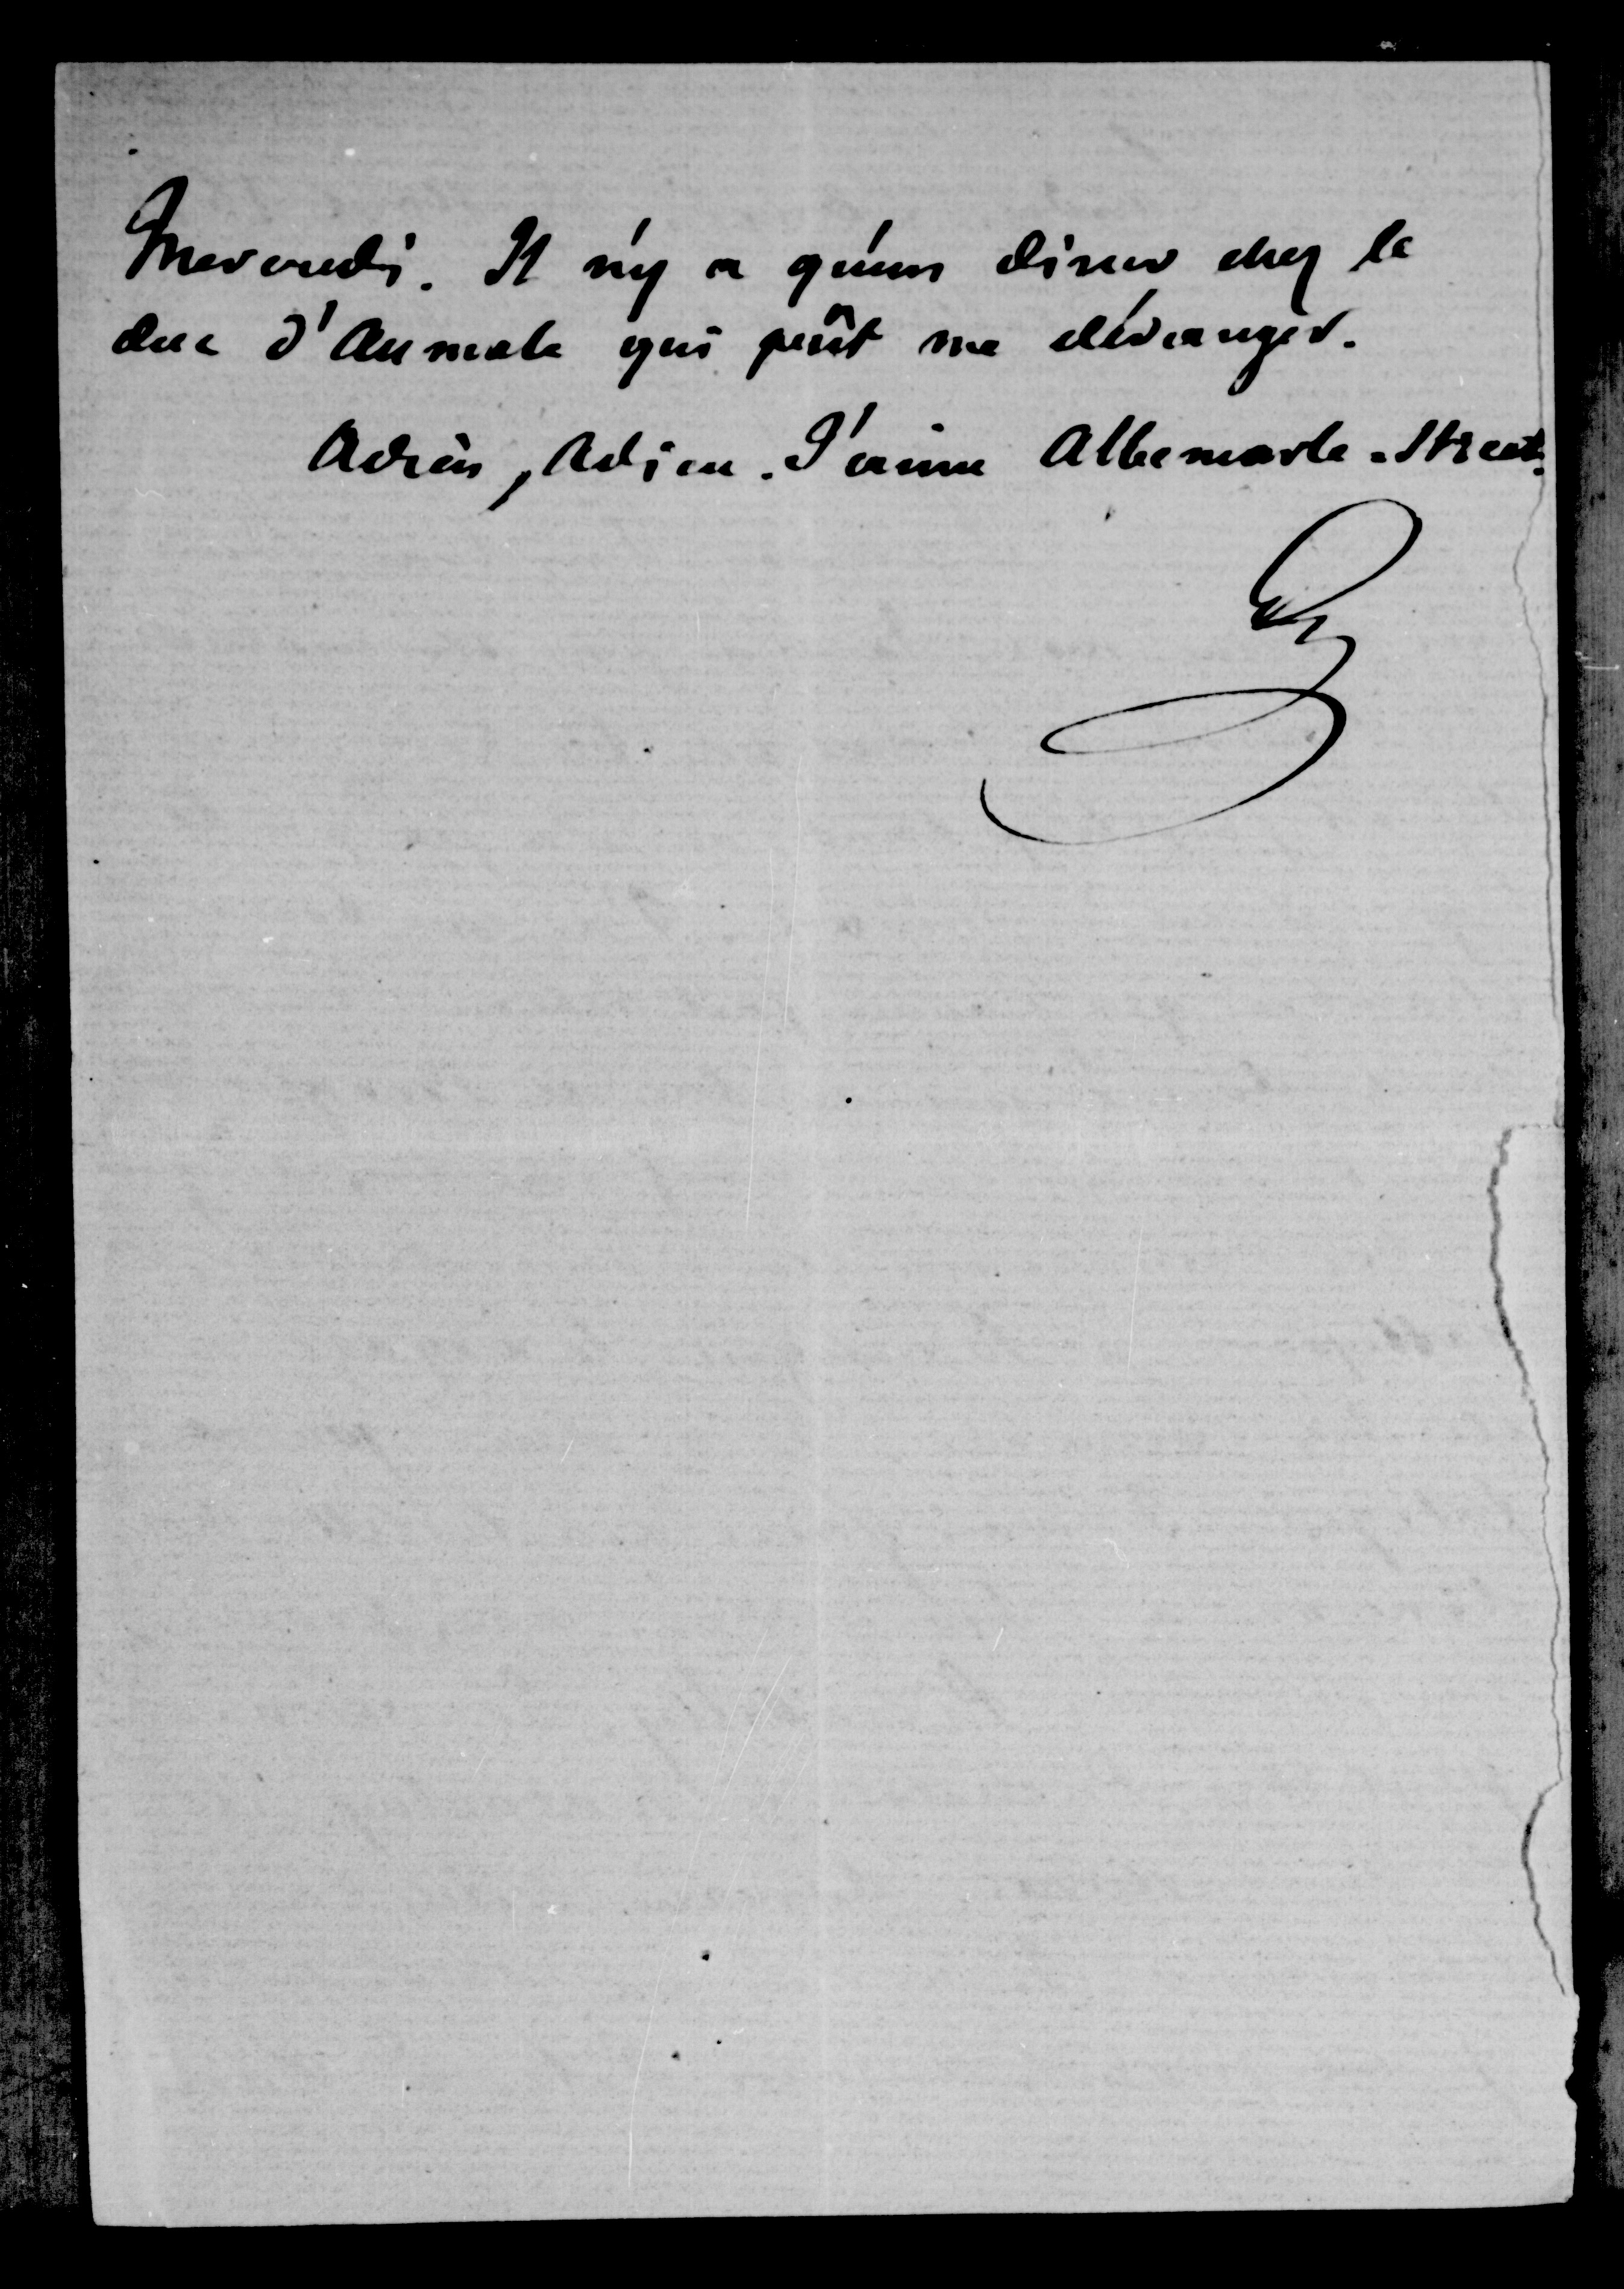 Mercredi. Il n'y a qu'un diner chez le
duc d'Aumale qui peût me déranger.
Adieu, Adieu. J'aime Albemarle-Street.